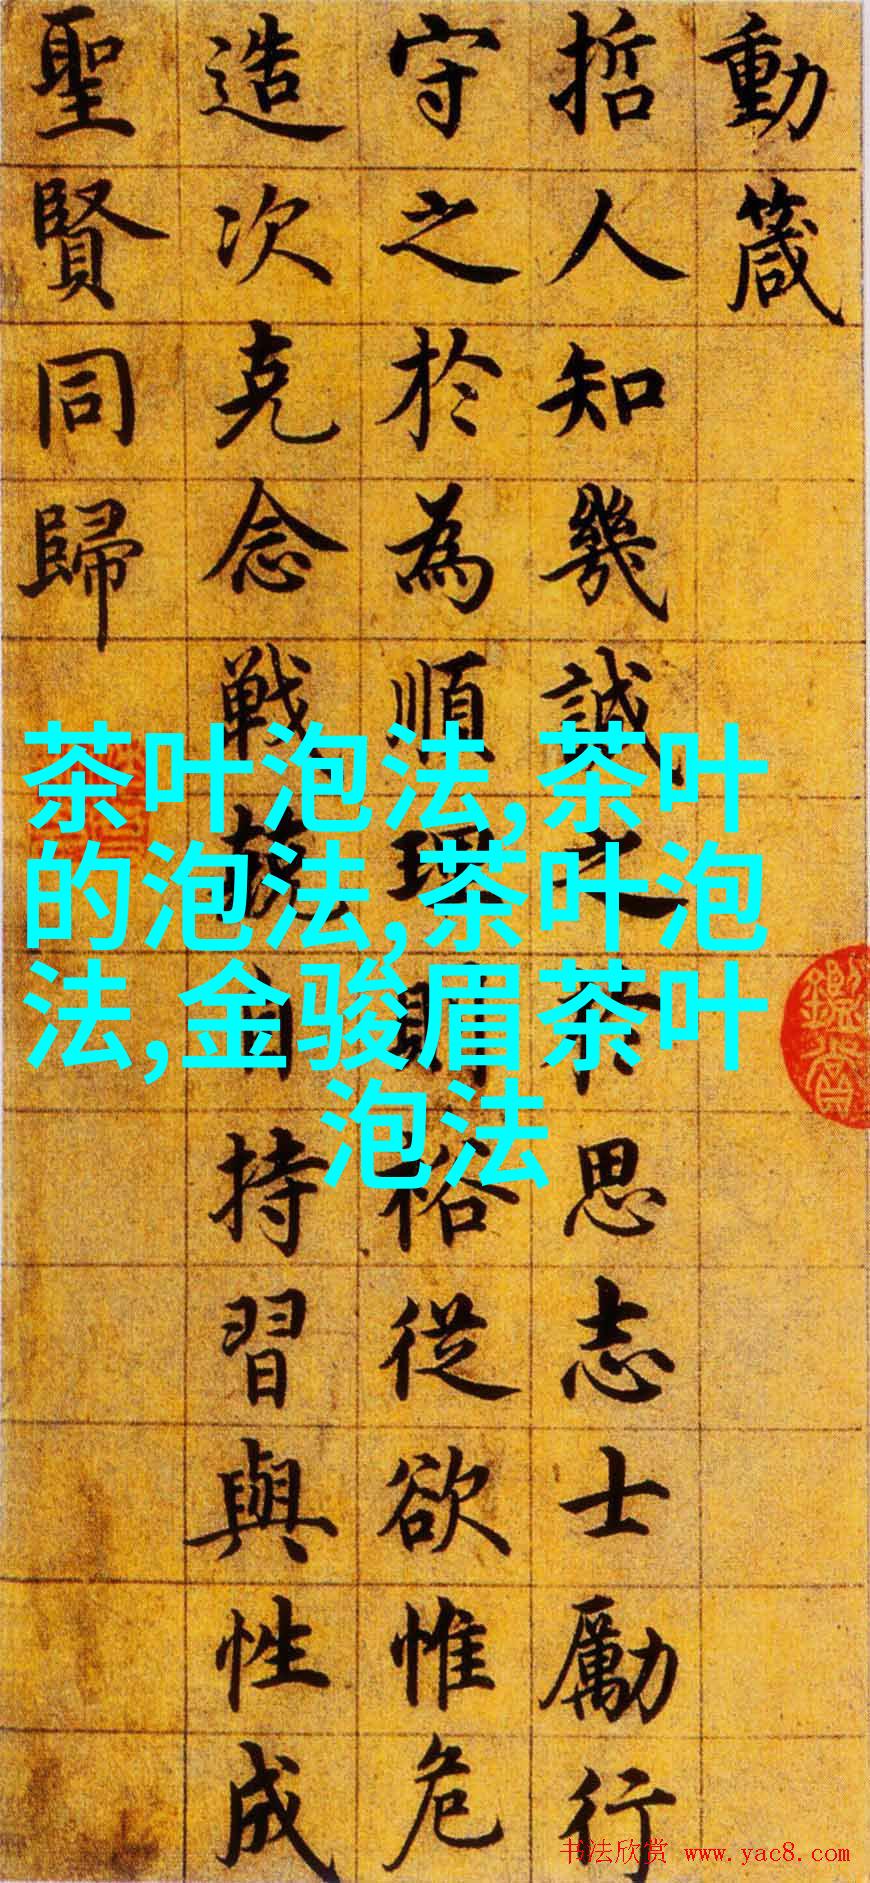 動箴
哲人知幾誠之於思志士勵行
守之於為順理則裕從欲惟危
造次克念戦兢自持習與性成
聖賢同歸
茶叶泡法,茶叶
的泡法,茶叶泡
法,金骏眉茶叶
泡法
书法欣赏 www.yac8.com